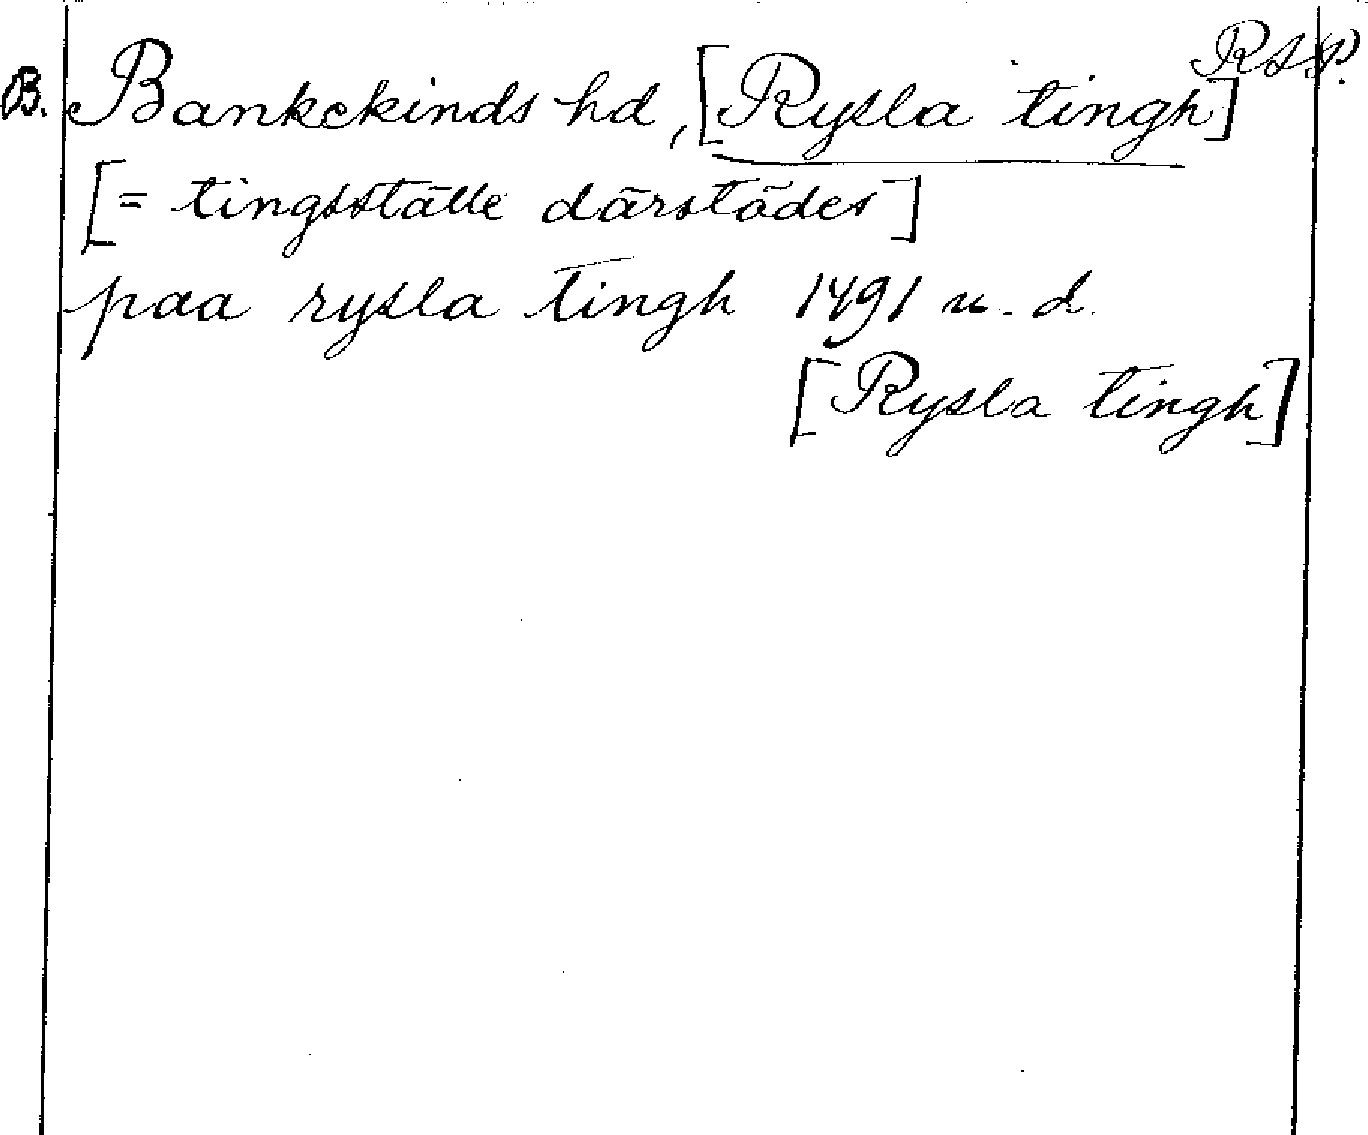 RSP.
B. Bankekinds hd, [Rysla tingh]
[= tingsställe därstädes]
paa rysla tingh 1491 u.d.
[Rysla tingh]